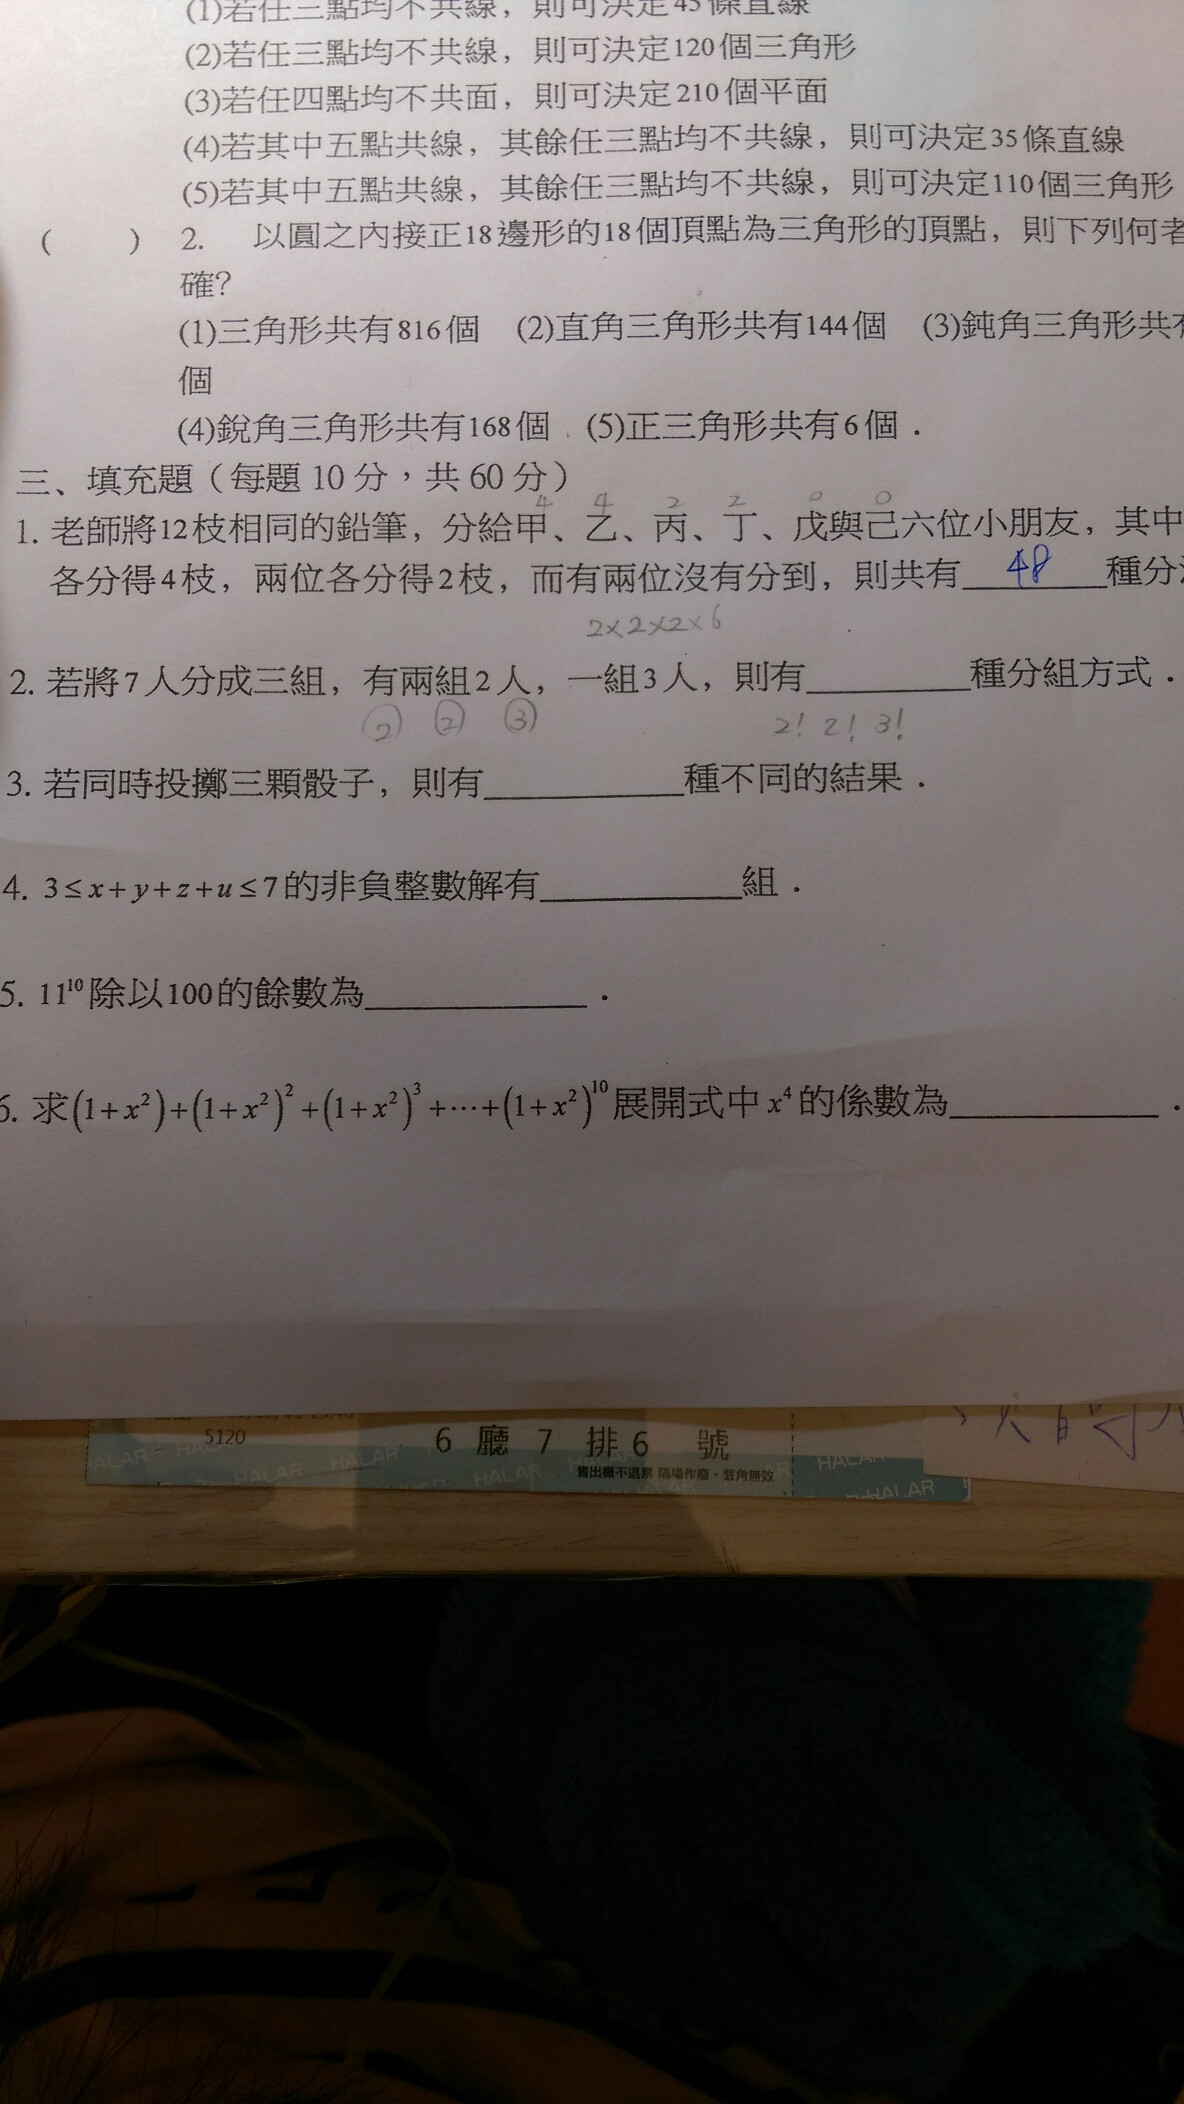 (1)若任三點均不共線，則可決定45條直線
(2)若任三點均不共線，則可決定120個三角形
(3)若任四點均不共面，則可決定210個平面
(4)若其中五點共線，其餘任三點均不共線，則可決定35條直線
(5)若其中五點共線，其餘任三點均不共線，則可決定110個三角形
( ) 2. 以圓之內接正18邊形的18個頂點為三角形的頂點，則下列何者
確?
(1)三角形共有816個 (2)直角三角形共有144個 (3)鈍角三角形共有
個
(4)銳角三角形共有168個 (5)正三角形共有6個．
三、填充題（每題 10 分，共 60 分）
4 4 2 2 0 0
1. 老師將12枝相同的鉛筆，分給甲、乙、丙、丁、戊與己六位小朋友，其中
各分得4枝，兩位各分得2枝，而有兩位沒有分到，則共有 48 種分
2×2×2×6
2. 若將7人分成三組，有兩組2人，一組3人，則有________種分組方式．
② ② ③ 2! 2! 3!
3. 若同時投擲三顆骰子，則有________種不同的結果．
4. 3≤x+y+z+u≤7的非負整數解有________組．
5. 11¹⁰除以100的餘數為________．
6. 求(1+x²)+(1+x²)²+(1+x²)³+⋯+(1+x²)¹⁰展開式中x⁴的係數為________．
5120
6 廳 7 排 6 號
售出概不退票 隔場作廢・截角無效
HALAR HALAR HALAR HALAR HALAR
HALAR HALAR